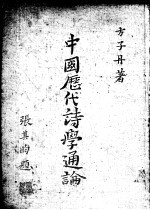 方子丹著
中國歷代詩學通論
張其昀題